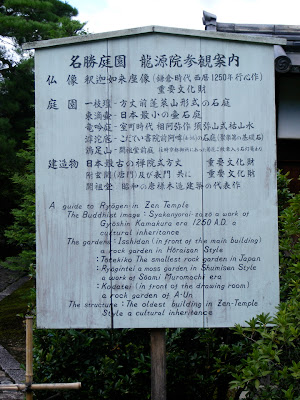 名勝庭園 龍源院参観案内
仏像 釈迦如来座像(鎌倉時代 西暦1250年行心作)
重要文化財
庭園 一枝坦・方丈前蓬莱山形式の石庭
東滴壷・日本最小の壷石庭
竜吟庭・室町時代 相阿弥作 須弥山式枯山水
滹沱底・こだてい 書院前阿吽の石庭(聚楽第の基礎石)
鶏足山・開祖堂前庭
建造物 日本最古の禅院式方丈 重要文化財
附玄関(唐門)及び表門 共に 重要文化財
開祖堂 昭和の唐様木造建築の代表作
A guide to Ryōgen-in Zen Temple
The Buddhist image: Syakanyorai-zazo a work of
Gyōshin Kamakura era 1250 A.D. a
cultural inheritance
The gardens: Isshidan (in front of the main building)
a rock garden in Hōraisan Style
: Totekiko The smallest rock garden in Japan
: Ryōgintei a moss garden in Shumisen Style
a work of Sōami Muromachi era
: Kodatei (in front of the drawing room)
a rock garden of A-Un
The structure: The oldest building in Zen-Temple
Style a cultural inheritance